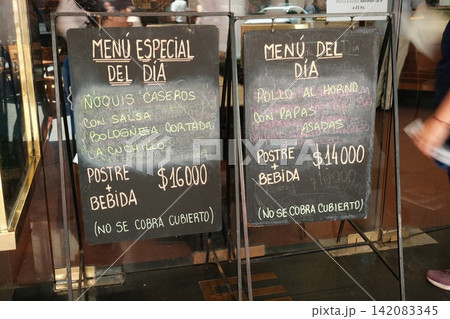 MENÚ ESPECIAL
DEL DÍA
ÑOQUIS CASEROS
CON SALSA
BOLOGNESA CORTADA
A CUCHILLO
POSTRE
+
BEBIDA
$16000
(NO SE COBRA CUBIERTO)
MENÚ DEL
DÍA
POLLO AL HORNO
CON PAPAS
ASADAS
POSTRE
+
BEBIDA
$14000
(NO SE COBRA CUBIERTO)
142083345